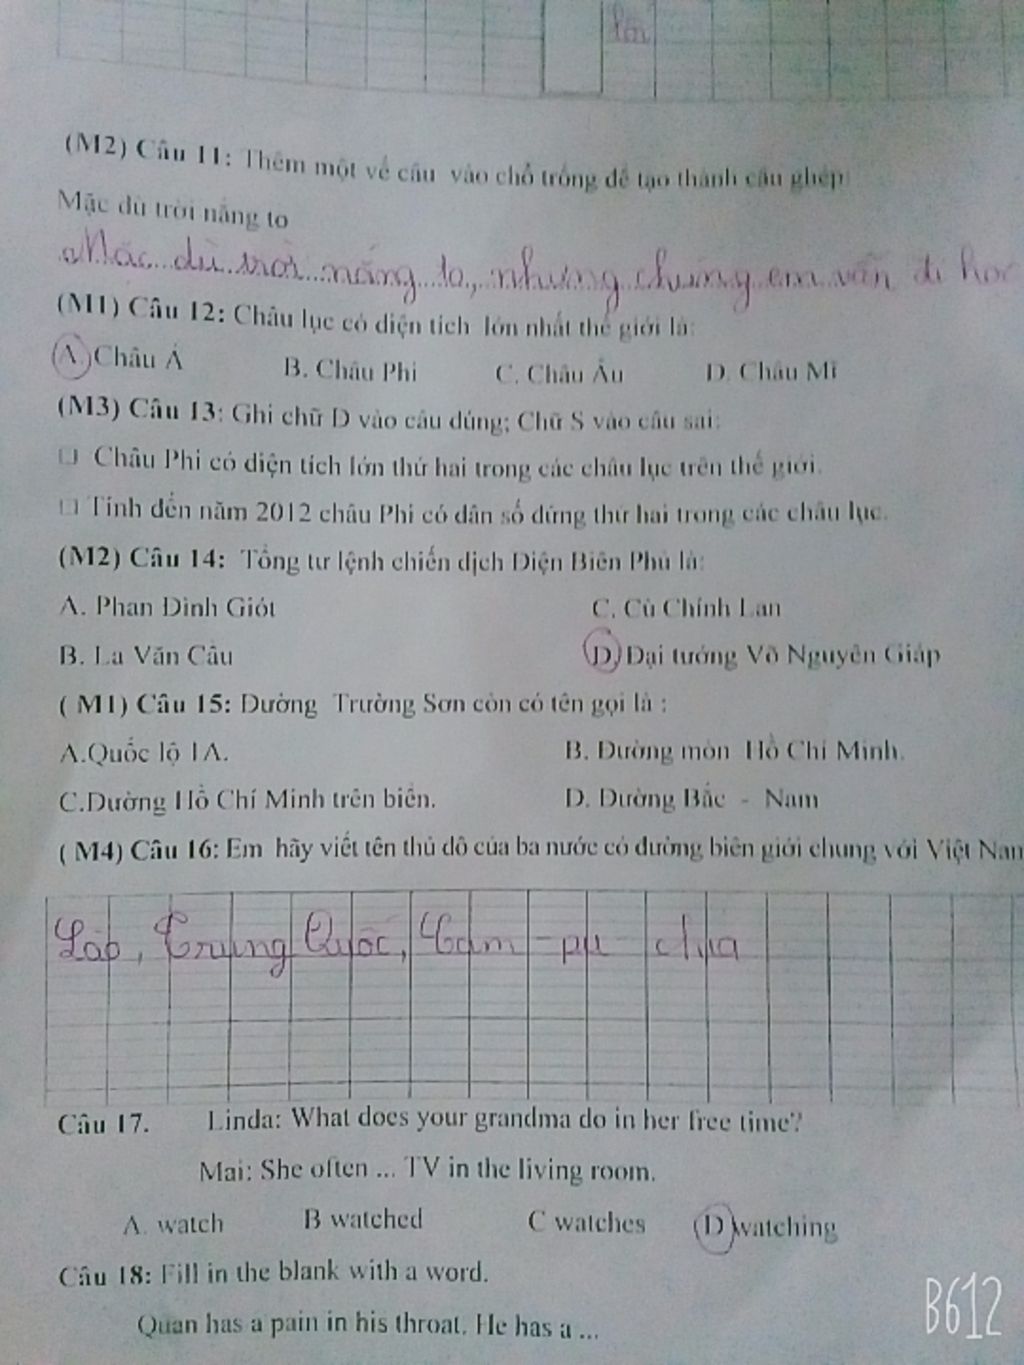 (M2) Câu 11: Thêm một vế câu vào chỗ trống để tạo thành câu ghép
Mặc dù trời nắng to
Mặc dù trời nắng to, nhưng chúng em vẫn đi học
(M1) Câu 12: Châu lục có diện tích lớn nhất thế giới là:
A. Châu Á B. Châu Phi C. Châu Âu D. Châu Mĩ
(M3) Câu 13: Ghi chữ Đ vào câu đúng; Chữ S vào câu sai:
□ Châu Phi có diện tích lớn thứ hai trong các châu lục trên thế giới.
□ Tính đến năm 2012 châu Phi có dân số đứng thứ hai trong các châu lục.
(M2) Câu 14: Tổng tư lệnh chiến dịch Điện Biên Phủ là:
A. Phan Đình Giót C. Cù Chính Lan
B. La Văn Cầu D. Đại tướng Võ Nguyên Giáp
( M1) Câu 15: Đường Trường Sơn còn có tên gọi là :
A.Quốc lộ 1A. B. Đường mòn Hồ Chí Minh.
C.Đường Hồ Chí Minh trên biển. D. Đường Bắc - Nam
( M4) Câu 16: Em hãy viết tên thủ đô của ba nước có đường biên giới chung với Việt Nam
Lào, Trung Quốc, Cam - pu chia
Câu 17. Linda: What does your grandma do in her free time?
Mai: She often ... TV in the living room.
A. watch B watched C watches D watching
Câu 18: Fill in the blank with a word.
Quan has a pain in his throat. He has a ...
B612